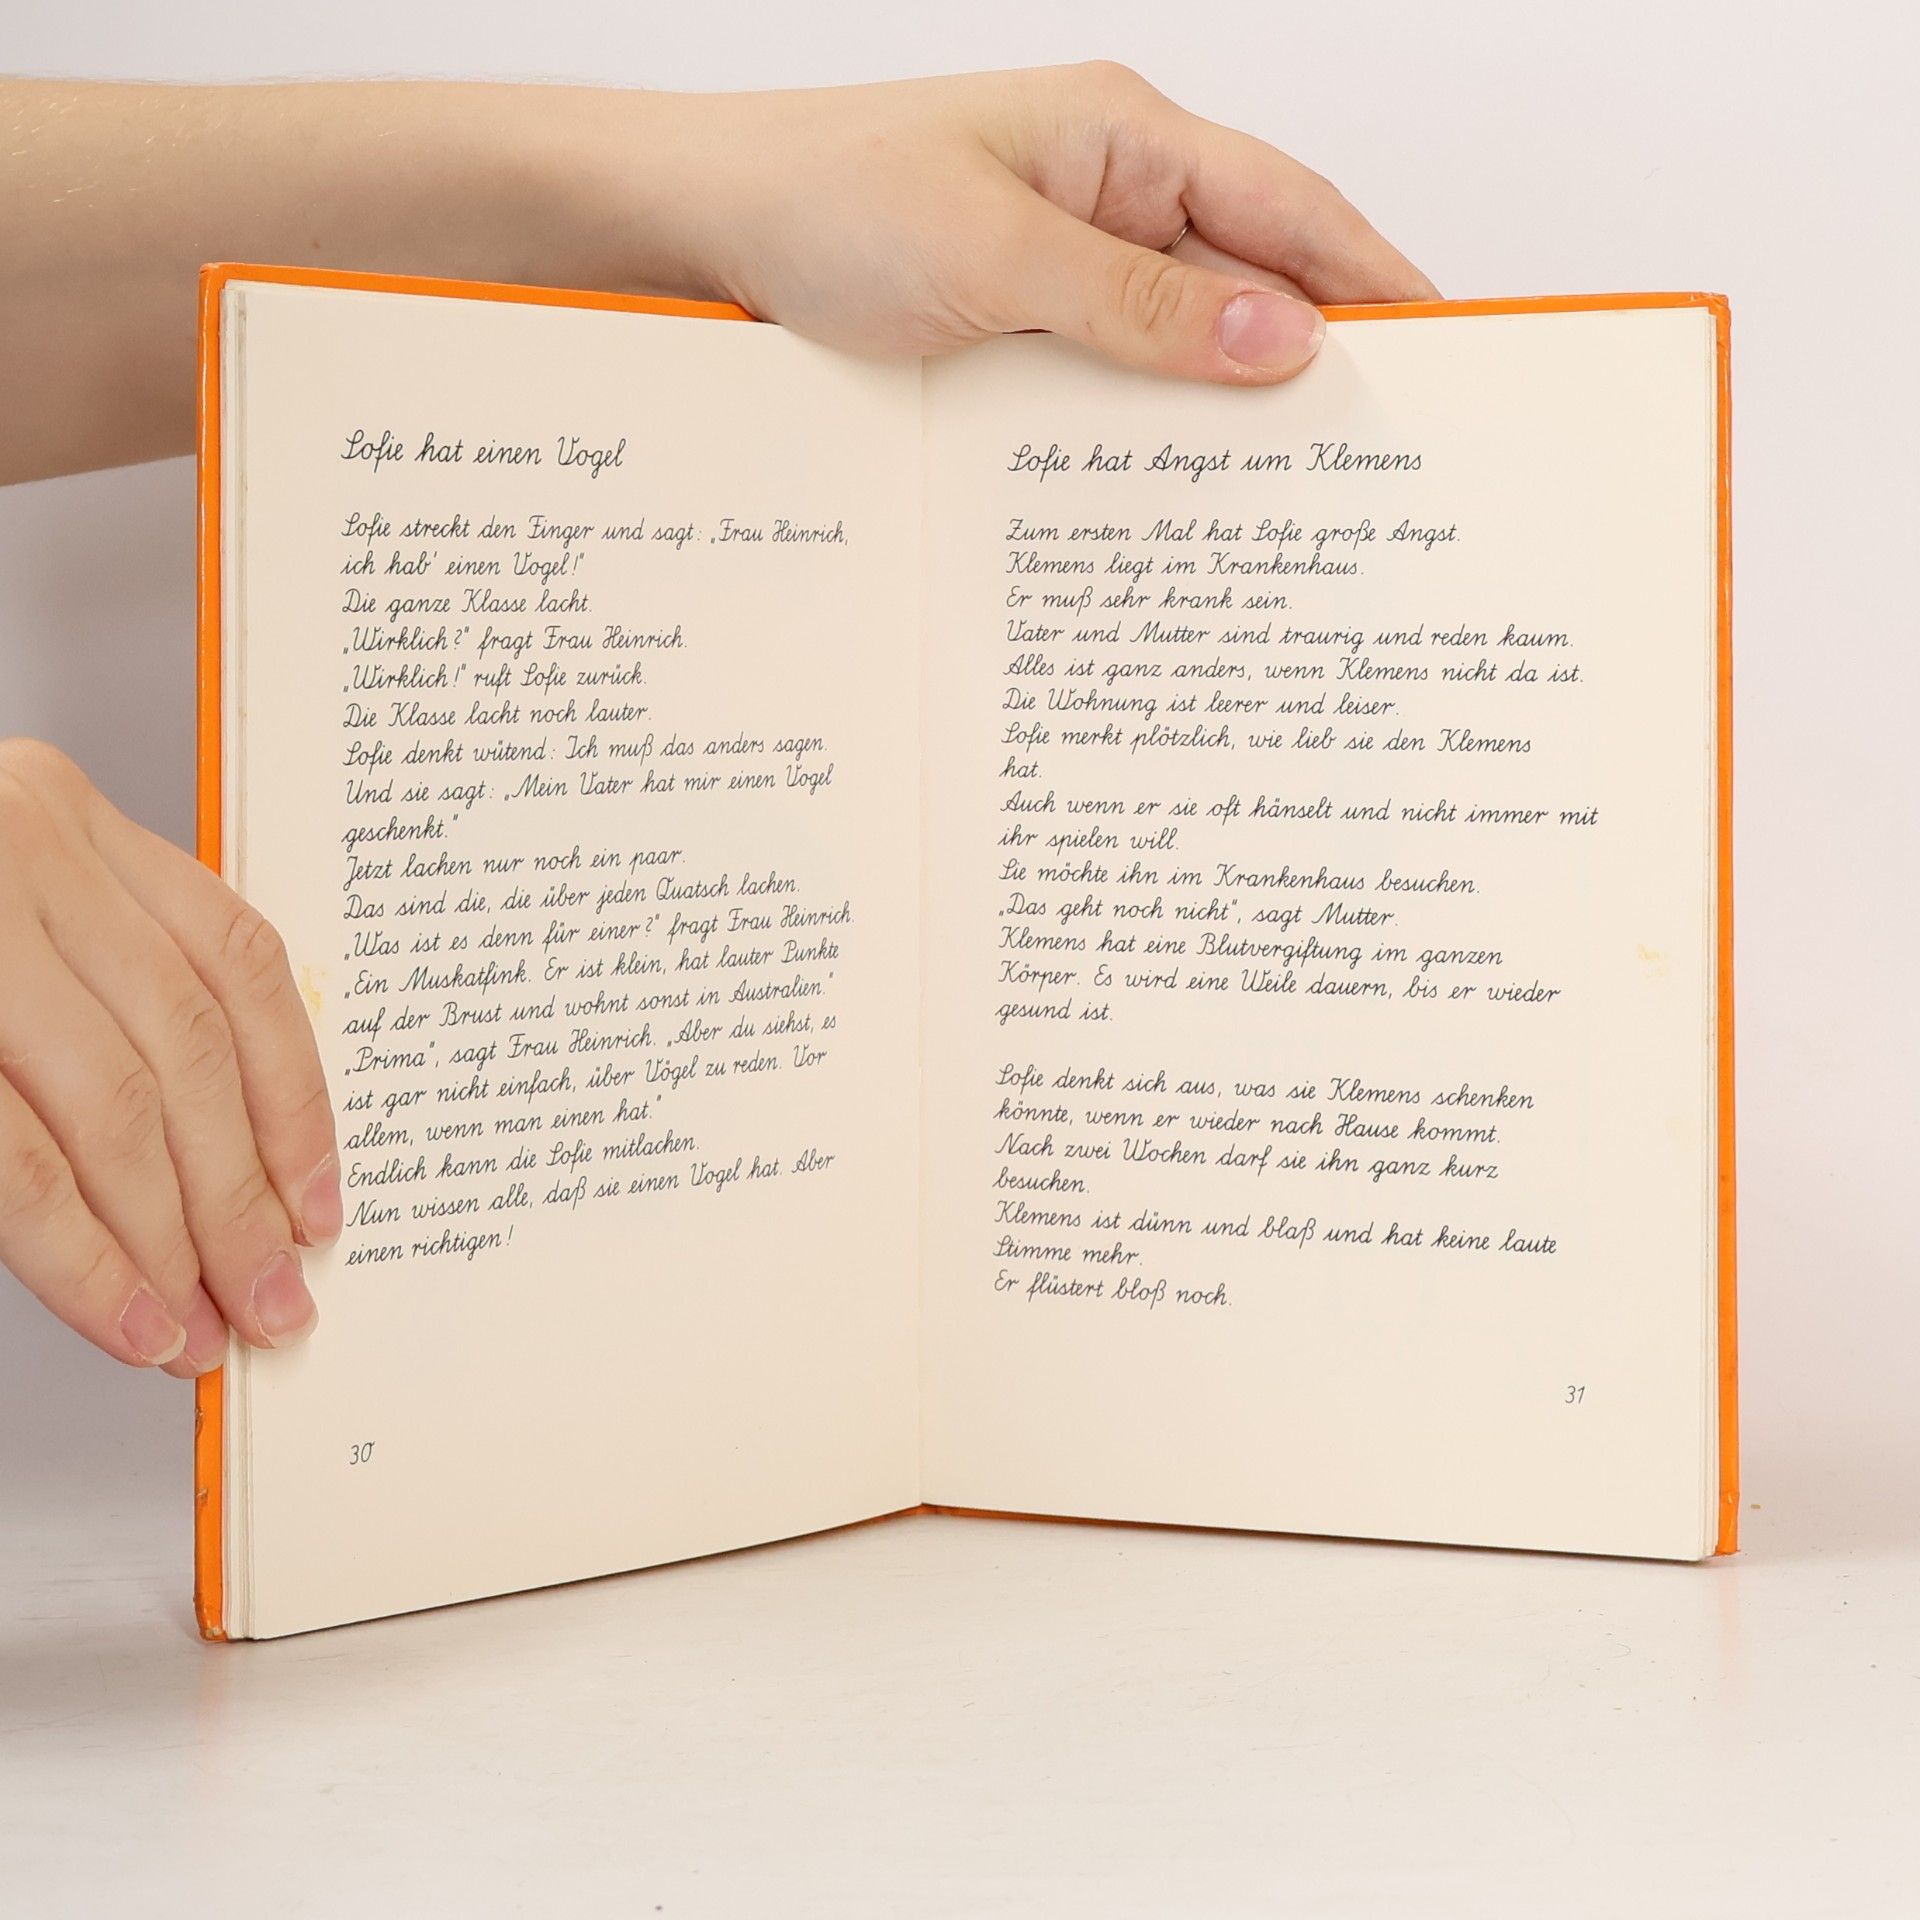 Sofie hat einen Vogel
Sofie streckt den Finger und sagt: „Frau Heinrich,
ich hab' einen Vogel!"
Die ganze Klasse lacht.
„Wirklich?" fragt Frau Heinrich.
„Wirklich!" ruft Sofie zurück.
Die Klasse lacht noch lauter.
Sofie denkt wütend: Ich muß das anders sagen.
Und sie sagt: „Mein Vater hat mir einen Vogel
geschenkt."
Jetzt lachen nur noch ein paar.
Das sind die, die über jeden Quatsch lachen.
„Was ist es denn für einer?" fragt Frau Heinrich.
„Ein Muskatfink. Er ist klein, hat lauter Punkte
auf der Brust und wohnt sonst in Australien."
„Prima", sagt Frau Heinrich. „Aber du siehst, es
ist gar nicht einfach, über Vögel zu reden. Vor
allem, wenn man einen hat."
Endlich kann die Sofie mitlachen.
Nun wissen alle, daß sie einen Vogel hat. Aber
einen richtigen!
30
Sofie hat Angst um Klemens
Zum ersten Mal hat Sofie große Angst.
Klemens liegt im Krankenhaus.
Er muß sehr krank sein.
Vater und Mutter sind traurig und reden kaum.
Alles ist ganz anders, wenn Klemens nicht da ist.
Die Wohnung ist leerer und leiser.
Sofie merkt plötzlich, wie lieb sie den Klemens
hat.
Auch wenn er sie oft hänselt und nicht immer mit
ihr spielen will.
Sie möchte ihn im Krankenhaus besuchen.
„Das geht noch nicht", sagt Mutter.
Klemens hat eine Blutvergiftung im ganzen
Körper. Es wird eine Weile dauern, bis er wieder
gesund ist.
Sofie denkt sich aus, was sie Klemens schenken
könnte, wenn er wieder nach Hause kommt.
Nach zwei Wochen darf sie ihn ganz kurz
besuchen.
Klemens ist dünn und blaß und hat keine laute
Stimme mehr.
Er flüstert bloß noch.
31